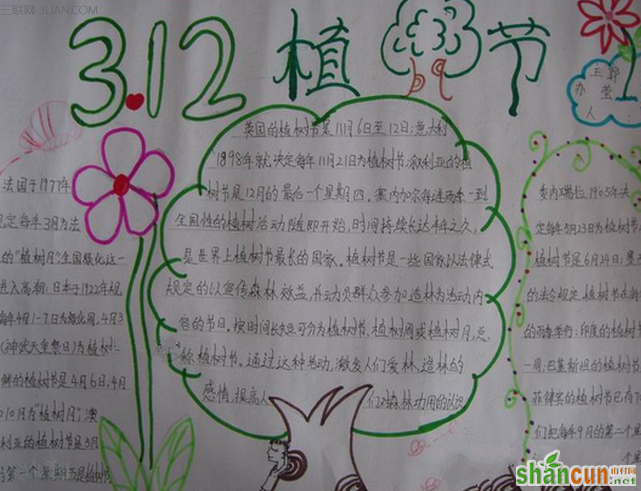 三联网 3LIAN.COM
3.12 植树节
王郭
办莹
人:
英国的植树节是11月6日至12日;意大利
1898年就决定每年11月21日为植树节;叙利亚的植
树节是12月的最后一个星期四。塞内加尔每逢雨季一到
全国性的植树活动随即开始,时间持续长达半年之久,
是世界上植树节最长的国家。植树节是一些国家以法律式
规定的以宣传森林效益,并动员群众参加造林为活动内
容的节日。按时间长短可分为植树节,植树周或植树月,总
称植树节。通过这种活动,激发人们爱林、造林的
感情,提高人们对森林功用的认识
法国于1977年
规定每年3月为法
的"植树月"全国绿化这一
进入高潮;日本于1922年规
每年4月1-7日为绿化周。4月3
(神武天皇祭日)为植树
的植树节是4月6日,4月
10月为"植树月";澳
利亚的植树节是5月
第一个星期五是植树节
委内瑞拉1905年决
定每年5月23日为植树节
植树节是6月24日;墨西
的法令规定,植树节在每
的雨季举行;印度的植树节
一周;巴基斯坦的植树节
菲律宾的植树节已有
们把每年9月的第二个星
shancun
.net